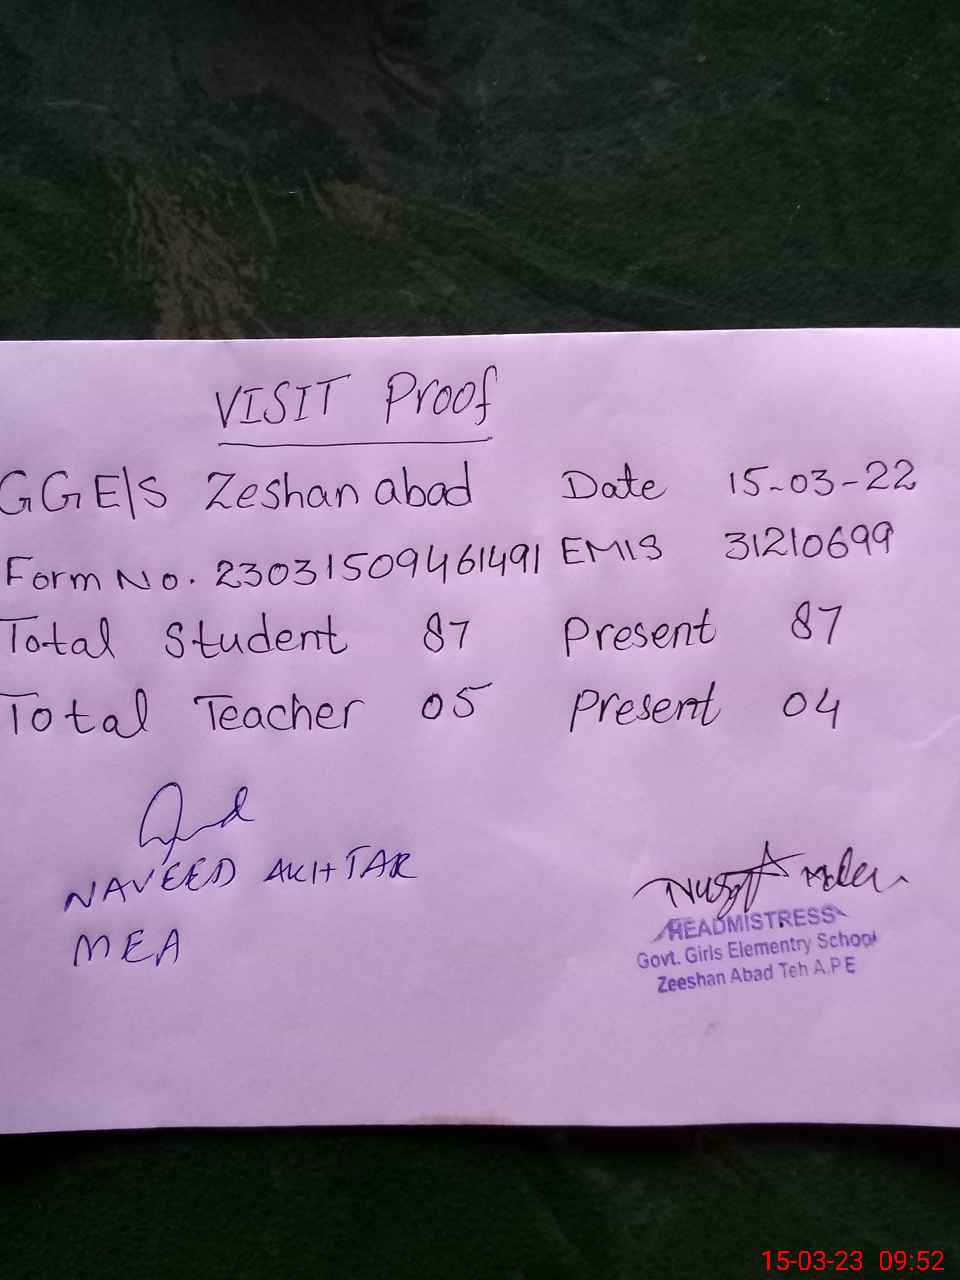 VISIT Proof
GGE/S Zeshan abad Date 15-03-22
Form No. 23031509461491 EMIS 31210699
Total Student 87 Present 87
Total Teacher 05 Present 04
NAVEED AKHTAR
MEA
HEADMISTRESS
Govt. Girls Elementry School
Zeeshan Abad Teh A.P E
15-03-23 09:52